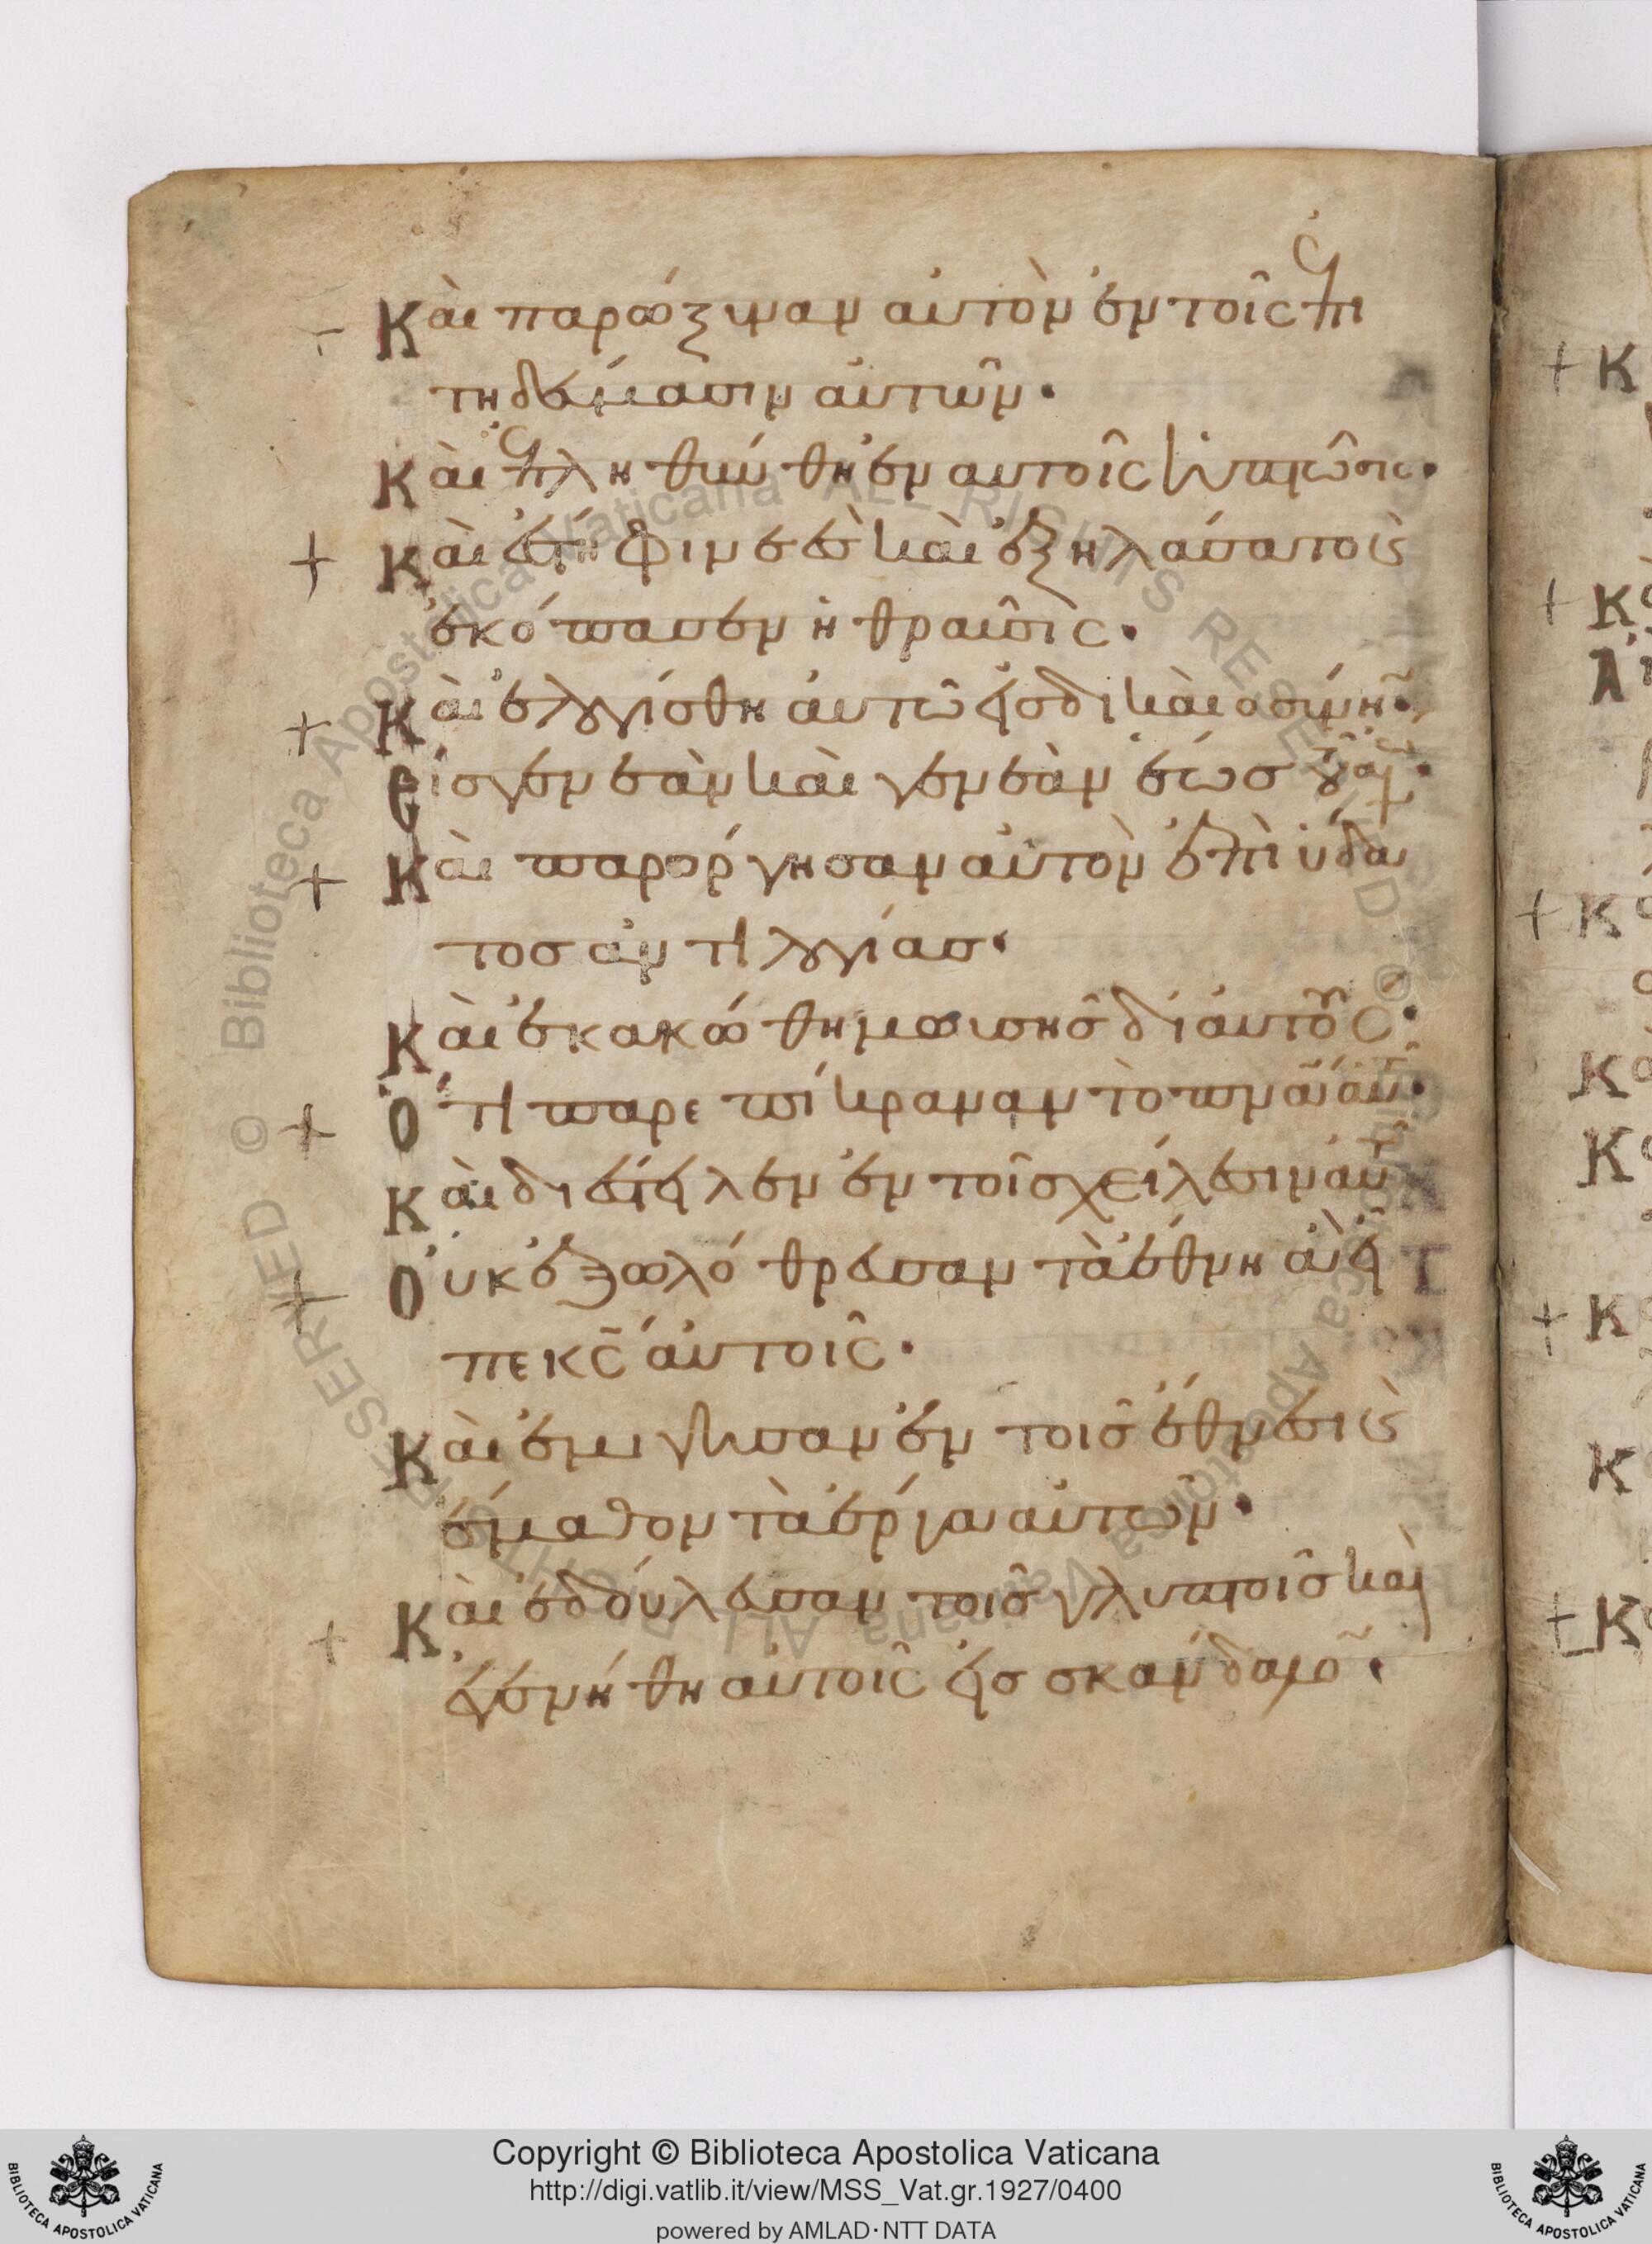 Καὶ παρώξυναν αὐτὸν ἐν τοῖς ἐπι
τηδεύμασιν αὐτῶν·
Καὶ ἐπληθύνθη ἐν αυτοῖς ἡ πτῶσις·
Καὶ ἔστη φινεὲς καὶ ἐξηλάσατο κ(αὶ)
ἐκόπασεν ἡ θραῦσις·
Καὶ ἐλογίσθη ἀυτῶ εἰσ δικαιοσύνην·
Εἰσ γενεὰν καὶ γενεὰν ἕωσ τοῦ αἰ·
Καὶ παρόργησαν αὐτὸν ἐπὶ ὑδα
τοσ ἀντιλογίασ·
Καὶ ἐκακώθη μωυσησ δι ἀυτοὺς·
Ὅτι παρεπίκραναν τὸ πνα αυτ·
Καὶ διέστειλεν ἐν τοῖσ χείλεσιν αὑτ
Οὐκ ἐξωλόθρευσαν τὰ ἔθνη ἃ εἶ
πεν κς ἀυτοῖς·
Καὶ ἐμιγησαν ἐν τοῖσ ἔθνεσι κ(αὶ)
ἔμαθον τὰ ἔργα αὐτῶν·
Καὶ ἐδούλευσαν τοῖσ γλυπτοῖσ καὶ
ἐγενήθη αὐτοῖς εἰσ σκάνδαλο·
Copyright © Biblioteca Apostolica Vaticana
http://digi.vatlib.it/view/MSS_Vat.gr.1927/0400
powered by AMLAD·NTT DATA
BIBLIOTECA APOSTOLICA VATICANA
BIBLIOTECA APOSTOLICA VATICANA